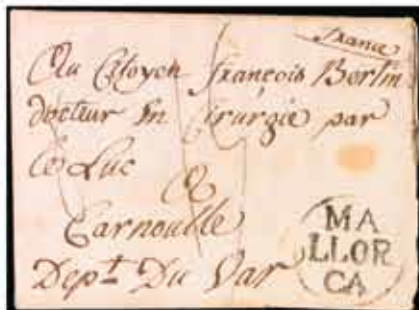 France
Au Citoyen françois Berlin
docteur En Cirurgie par
le Luc
a
Carnoulle
Dept Du Var
MA
LLOR
CA